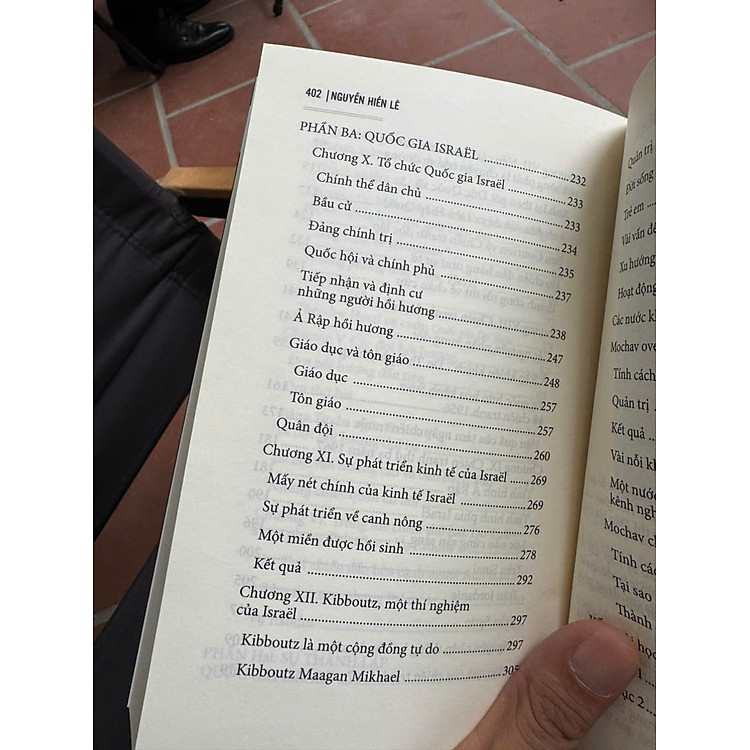 402 | NGUYỄN HIẾN LÊ
PHẦN BA: QUỐC GIA ISRAËL ........ 232
Chương X. Tổ chức Quốc gia Israël ........ 233
Chính thể dân chủ ........ 233
Bầu cử ........ 234
Đảng chính trị ........ 235
Quốc hội và chính phủ ........ 237
Tiếp nhận và định cư
những người hồi hương ........ 238
Ả Rập hồi hương ........ 247
Giáo dục và tôn giáo ........ 248
Giáo dục ........ 257
Tôn giáo ........ 257
Quân đội ........ 260
Chương XI. Sự phát triển kinh tế của Israël ........ 269
Mấy nét chính của kinh tế Israël ........ 269
Sự phát triển về canh nông ........ 276
Một miền được hồi sinh ........ 278
Kết quả ........ 292
Chương XII. Kibboutz, một thí nghiệm
của Israël ........ 297
Kibboutz là một cộng đồng tự do ........ 297
Kibboutz Maagan Mikhael ........ 305
Quản trị
Đời sống
Trẻ em
Vài vấn đề
Xu hướng
Hoạt động
Các nước
Mochav
Tính cách
Quản trị
Kết quả
Vài nỗi
Một nước
kênh
Mochav
Tính
Tại sao
Thành
1
2